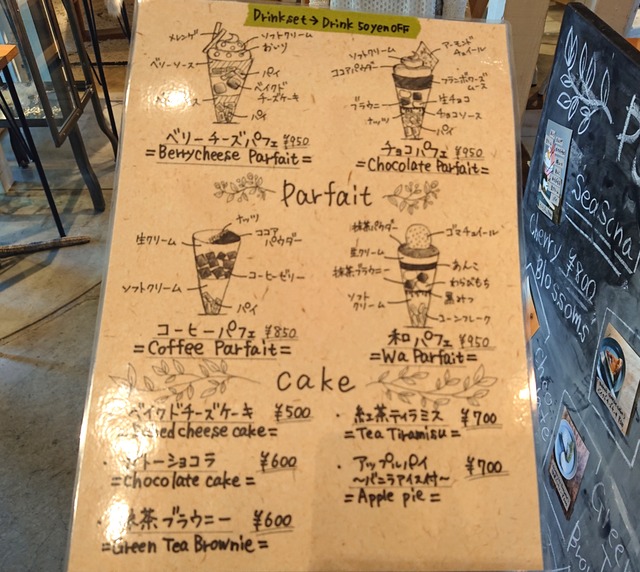 Drinkset → Drink 50yenOFF
メレンゲ
ソフトクリーム
ベリーソース
パイ
ベイクド
チーズケーキ
パイ
ベリーチーズパフェ ¥950
=Berrycheese Parfait=
ソフトクリーム
アーモンド
チュイール
ココアパウダー
フランボワーズ
ムース
ブラウニー
生チョコ
ナッツ
チョコソース
パイ
チョコパフェ ¥950
=Chocolate Parfait=
Parfait
ナッツ
生クリーム
ココア
パウダー
コーヒーゼリー
ソフトクリーム
パイ
コーヒーパフェ ¥850
=Coffee Parfait=
抹茶パウダー
ゴマチュイール
生クリーム
あんこ
抹茶ブラウニー
わらびもち
ソフト
クリーム
黒みつ
コーンフレーク
和パフェ ¥950
=Wa Parfait=
cake
ベイクドチーズケーキ ¥500
cheese cake=
・紅茶ティラミス ¥700
=Tea Tiramisu=
トーショコラ ¥600
=Chocolate cake=
・アップルパイ ¥700
〜バニラアイス付〜
=Apple pie=
茶ブラウニー ¥600
=Green Tea Brownie=
cherry ¥800
Blossoms